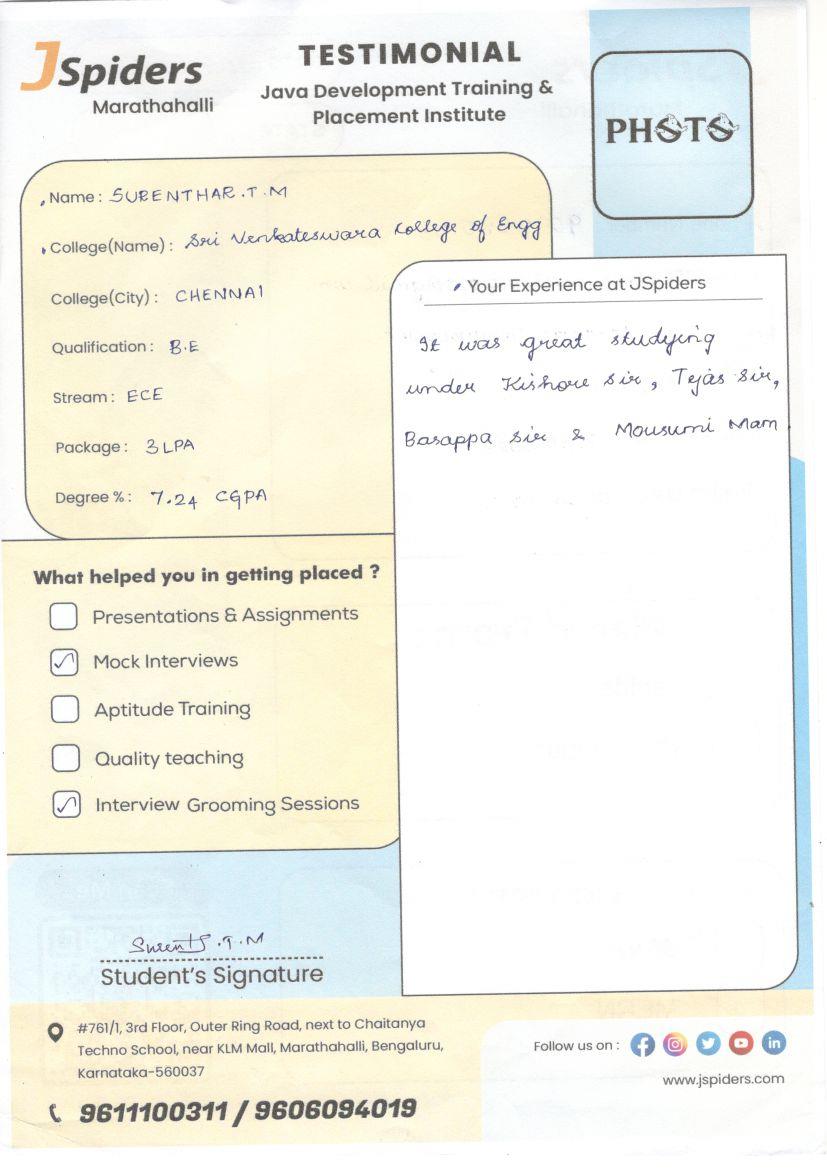 JSpiders
Marathahalli
TESTIMONIAL
Java Development Training &
Placement Institute
PHOTO
Name : SURENTHAR.T.M
College(Name) : Sri Venkateswara College of Engg
College(City) : CHENNAI
Qualification : B.E
Stream : ECE
Package : 3 LPA
Degree % : 7.24 CGPA
Your Experience at JSpiders
It was great studying
under Kishore sir, Tejas sir,
Basappa sir & Mousumi Mam
What helped you in getting placed ?
Presentations & Assignments
Mock Interviews
Aptitude Training
Quality teaching
Interview Grooming Sessions
T.M
Student's Signature
#761/1, 3rd Floor, Outer Ring Road, next to Chaitanya
Techno School, near KLM Mall, Marathahalli, Bengaluru,
Karnataka-560037
9611100311 / 9606094019
Follow us on :
www.jspiders.com